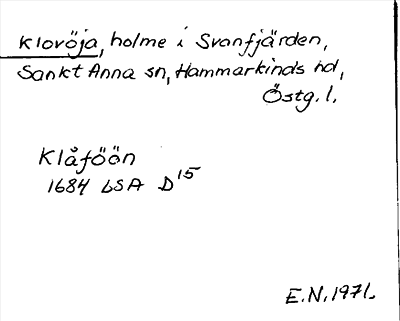 Klovöja, holme i Svanfjärden,
Sankt Anna sn, Hammarkinds hd,
Östg. l.
Klåföön
1684 LSA D 15
E.N. 1971.